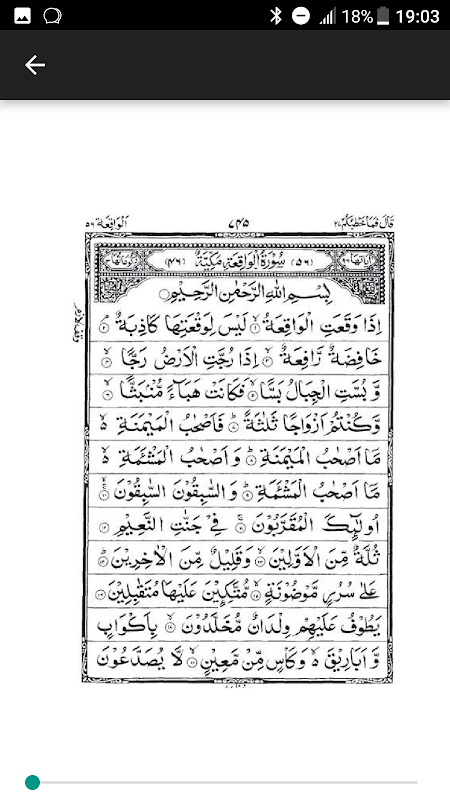 18% 19:03
قَالَ فَمَا خَطْبُكُمْ ٢٧ ٧٤٥ اَلْوَاقِعَة ٥٦
(٥٦) سُوْرَةُ الْوَاقِعَةِ مَكِّيَّةٌ (٤٦)
بِسْمِ اللّٰهِ الرَّحْمٰنِ الرَّحِيْمِ
اِذَا وَقَعَتِ الْوَاقِعَةُ ۙ۱ لَيْسَ لِوَقْعَتِهَا كَاذِبَةٌ ۘ۲
خَافِضَةٌ رَّافِعَةٌ ۙ۳ اِذَا رُجَّتِ الْاَرْضُ رَجًّا ۙ۴
وَّ بُسَّتِ الْجِبَالُ بَسًّا ۙ۵ فَكَانَتْ هَبَآءً مُّنْۢبَثًّا ۙ۶
وَّكُنْتُمْ اَزْوَاجًا ثَلٰثَةً ؕ۷ فَاَصْحٰبُ الْمَيْمَنَةِ ۙ۬
مَاۤ اَصْحٰبُ الْمَيْمَنَةِ ؕ۸ وَ اَصْحٰبُ الْمَشْـَٔمَةِ ۙ۬
مَاۤ اَصْحٰبُ الْمَشْـَٔمَةِ ؕ۹ وَ السّٰبِقُوْنَ السّٰبِقُوْنَ ۚۙ۱۰
اُولٰٓئِكَ الْمُقَرَّبُوْنَ ۚ۱۱ فِيْ جَنّٰتِ النَّعِيْمِ ۱۲
ثُلَّةٌ مِّنَ الْاَوَّلِيْنَ ۙ۱۳ وَ قَلِيْلٌ مِّنَ الْاٰخِرِيْنَ ؕ۱۴
عَلٰى سُرُرٍ مَّوْضُوْنَةٍ ۙ۱۵ مُّتَّكِـِٕيْنَ عَلَيْهَا مُتَقٰبِلِيْنَ ۱۶
يَطُوْفُ عَلَيْهِمْ وِلْدَانٌ مُّخَلَّدُوْنَ ۙ۱۷ بِاَكْوَابٍ
وَّ اَبَارِيْقَ ۙ۬ وَكَاْسٍ مِّنْ مَّعِيْنٍ ۙ۱۸ لَّا يُصَدَّعُوْنَ